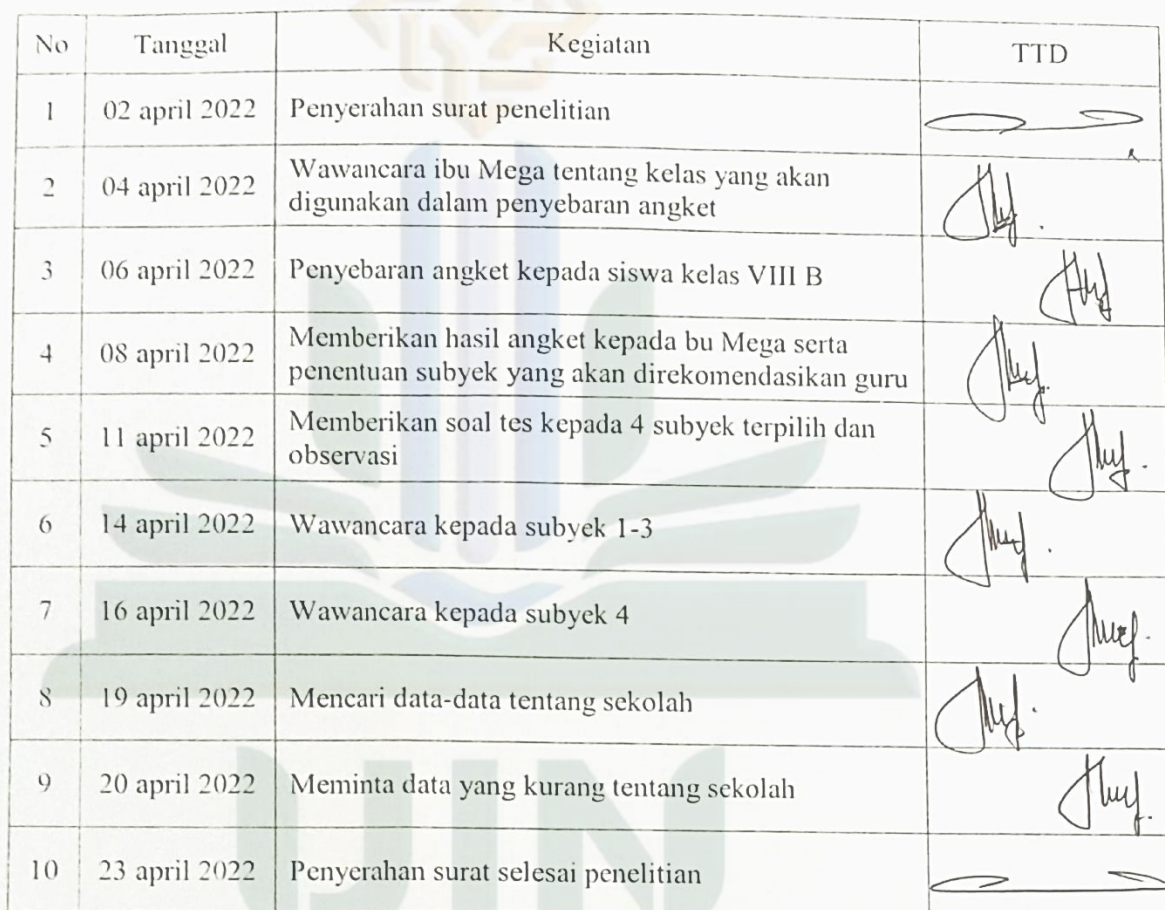 No Tanggal Kegiatan TTD
1 02 april 2022 Penyerahan surat penelitian
2 04 april 2022 Wawancara ibu Mega tentang kelas yang akan
digunakan dalam penyebaran angket
3 06 april 2022 Penyebaran angket kepada siswa kelas VIII B
4 08 april 2022 Memberikan hasil angket kepada bu Mega serta
penentuan subyek yang akan direkomendasikan guru
5 11 april 2022 Memberikan soal tes kepada 4 subyek terpilih dan
observasi
6 14 april 2022 Wawancara kepada subyek 1-3
7 16 april 2022 Wawancara kepada subyek 4
8 19 april 2022 Mencari data-data tentang sekolah
9 20 april 2022 Meminta data yang kurang tentang sekolah
10 23 april 2022 Penyerahan surat selesai penelitian
UIN